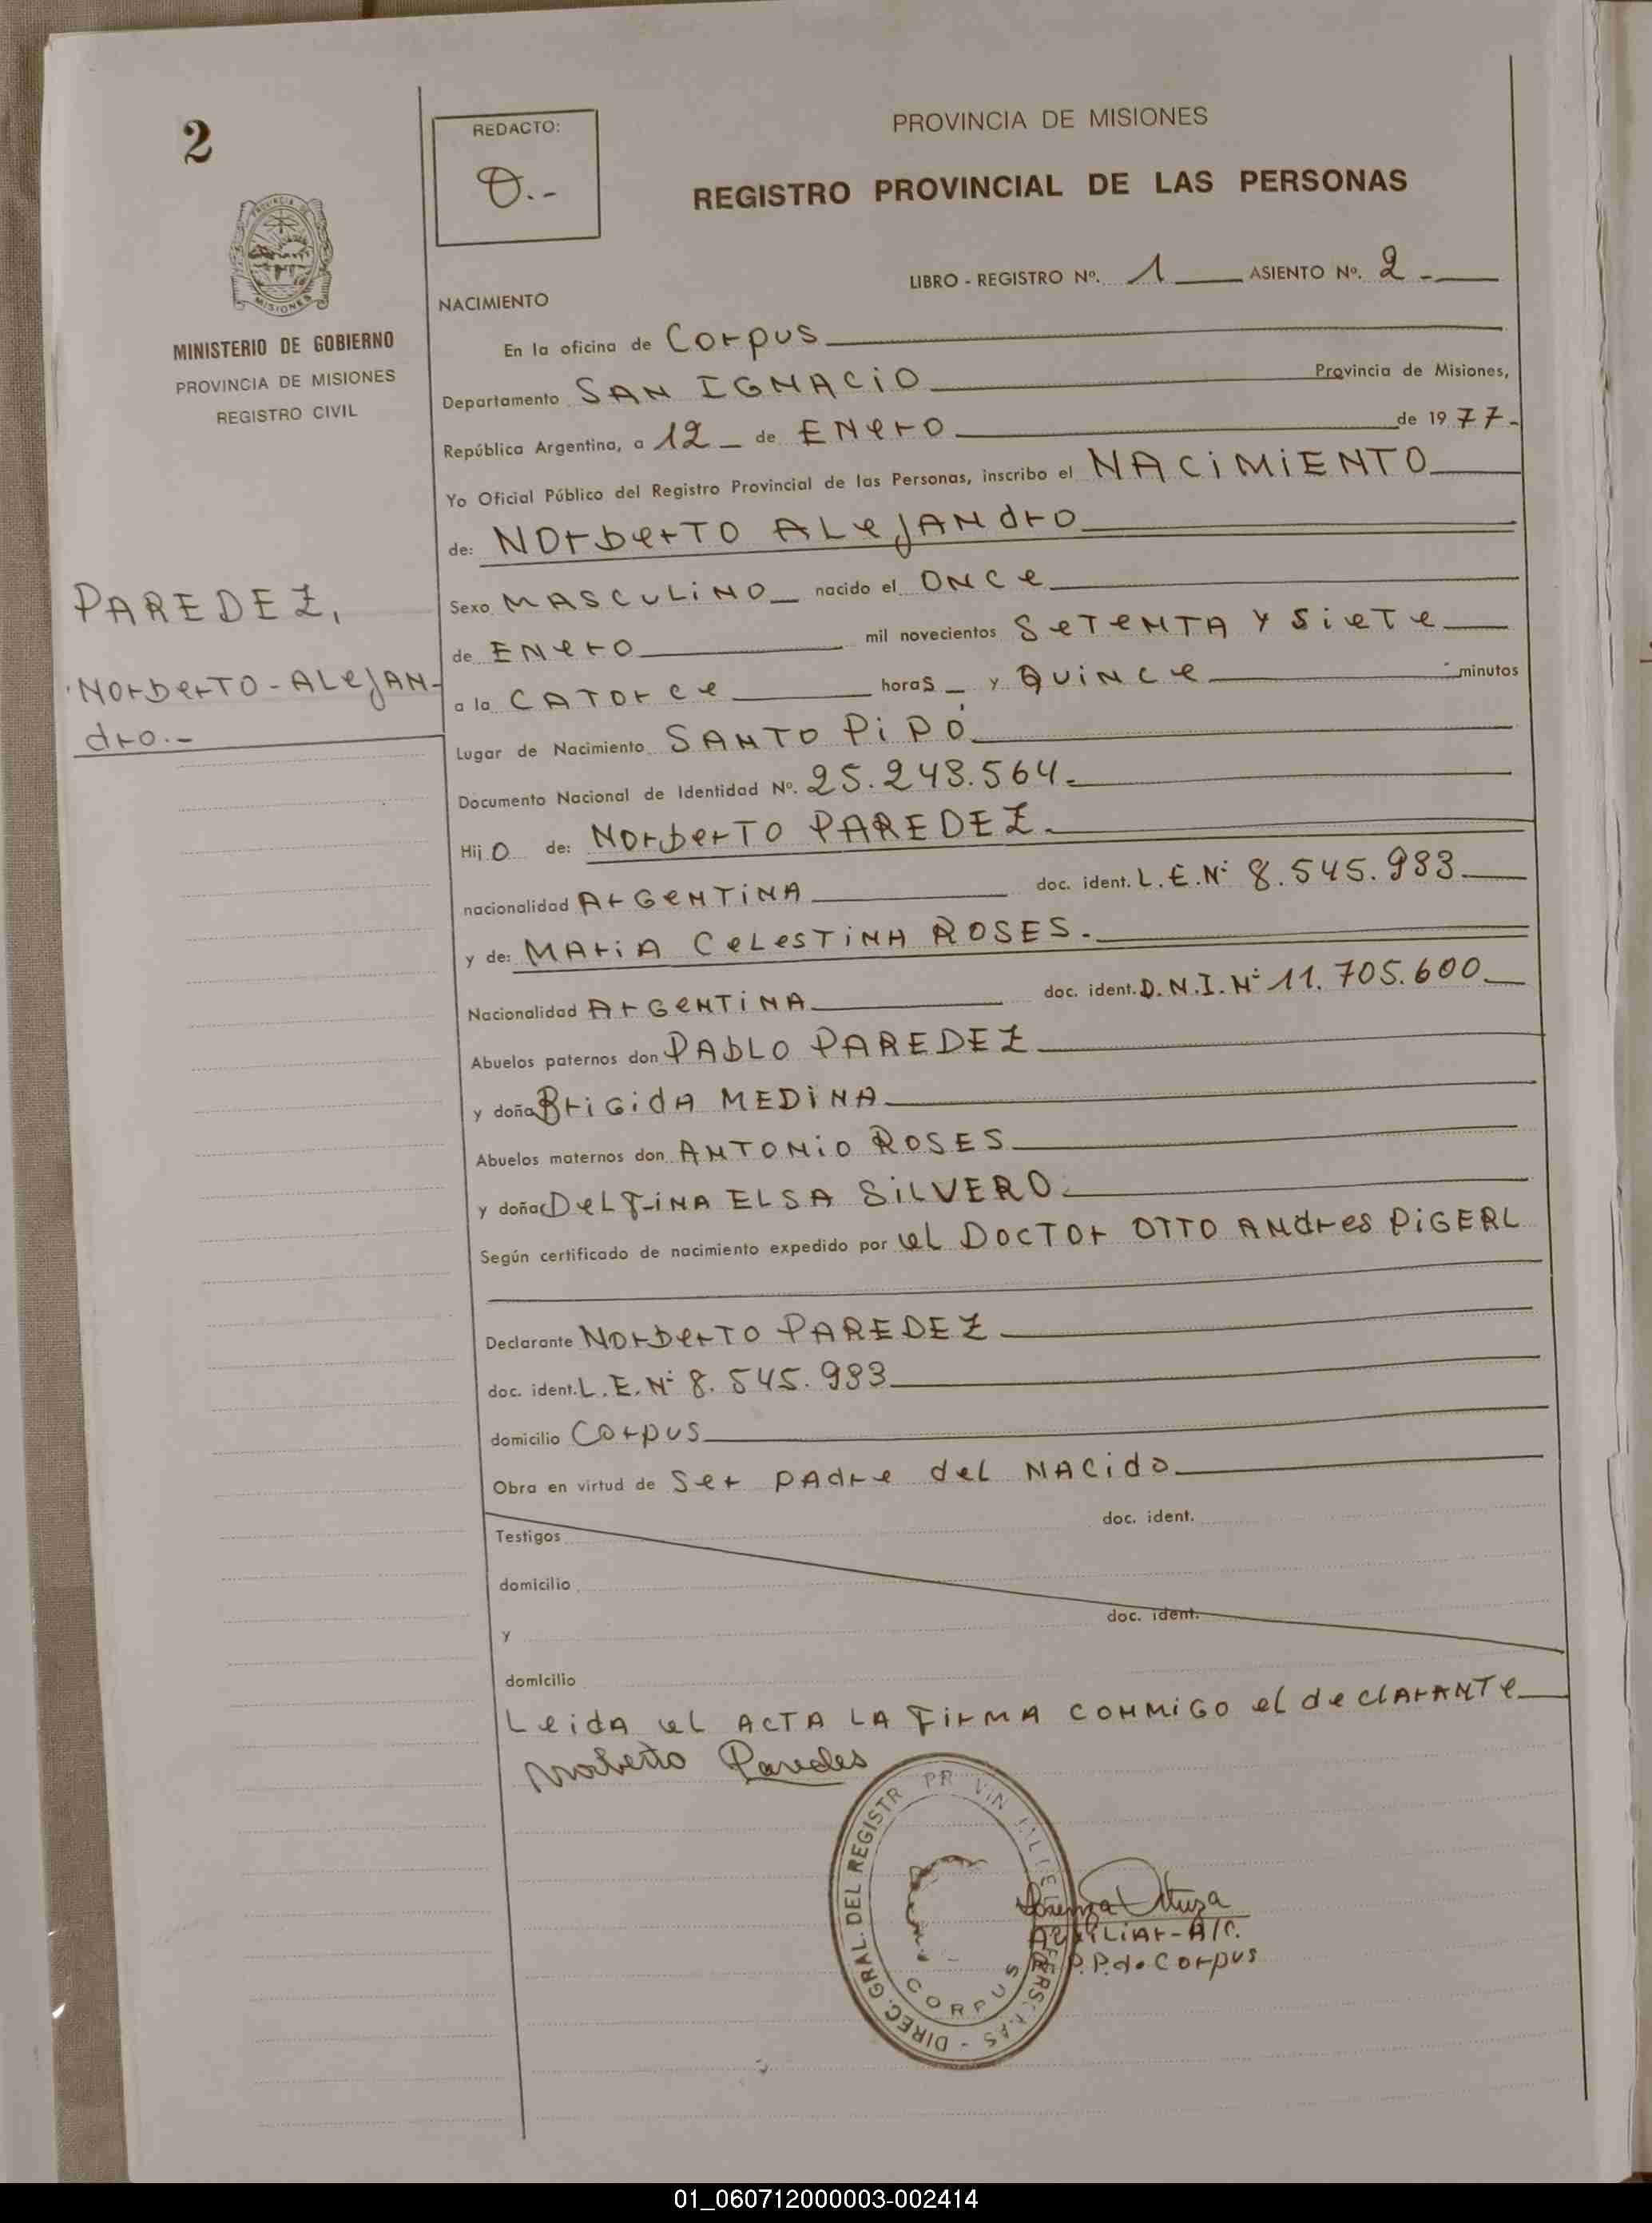 2
REDACTO:
O.-
PROVINCIA DE MISIONES
REGISTRO PROVINCIAL DE LAS PERSONAS
MISIONES
MINISTERIO DE GOBIERNO
PROVINCIA DE MISIONES
REGISTRO CIVIL
LIBRO - REGISTRO Nº. 1 ASIENTO Nº. 2 -
NACIMIENTO
En la oficina de Corpus
Departamento SAN IGNACiO Provincia de Misiones,
República Argentina, a 12 - de ENero de 1977-
Yo Oficial Público del Registro Provincial de las Personas, inscribo el NACiMiENTO
de: NOrberTO ALeJANdrO
PAREDEZ,
NOrberTO - ALeJAN-
drO.-
Sexo MASCULiNO nacido el ONCe
de ENerO mil novecientos SeTeNTA Y SieTe
a la CATOrce horas y QUiNCe minutos
Lugar de Nacimiento SANTO PiPÓ
Documento Nacional de Identidad Nº. 25.248.564.
Hij O de: NOrberTO PAREDEZ.
nacionalidad ArGeNTiNA doc. ident. L.E.Nº 8.545.983
y de: MAriA CeLesTiNA ROSES.
Nacionalidad ArGeNTiNA doc. ident. D.N.I.Nº 11.705.600
Abuelos paternos don PAbLO PAREDEZ
y doña BriGidA MEDiNA
Abuelos maternos don ANTONiO ROSES
y doña DeLFiNA ELSA SiLVERO.
Según certificado de nacimiento expedido por eL DOCTOr OTTO ANdres PiGERL
Declarante NOrberTO PAREDEZ
doc. ident. L.E.Nº 8.545.983
domicilio Corpus
Obra en virtud de Ser pAdre deL NACidO
Testigos doc. ident.
domicilio
y doc. ident.
domicilio
LeidA eL ACTA LA FirMA CONMiGO el declArANTe
Norberto Paredes
DIREC. GRAL. DEL REGISTR PR VIN
CORPUS
AUXiLiAr - A/C.
R.P.P. de Corpus
01_060712000003-002414